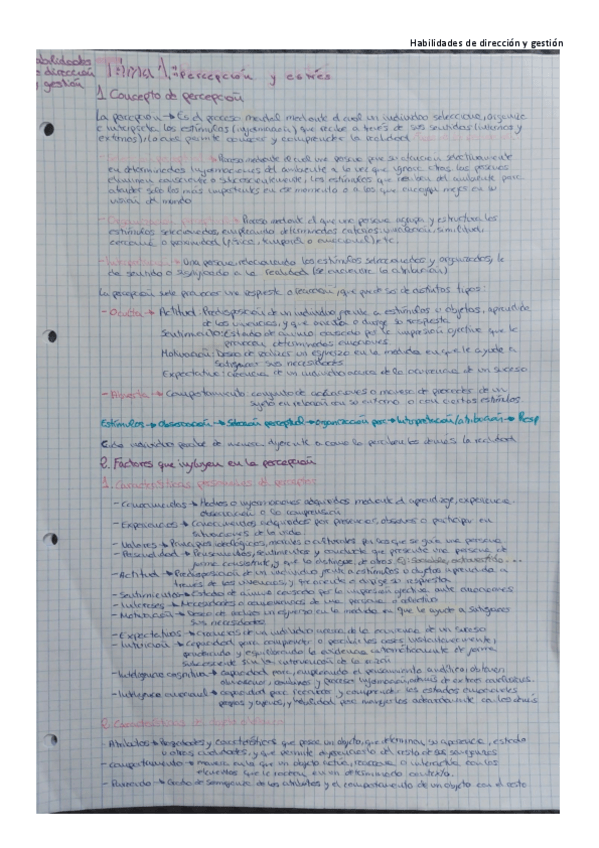 Habilidades de dirección y gestión
Habilidades
dirección
y gestión
Tema 1: Percepción y estrés
1 Concepto de percepción
La percepción → Es el proceso mental mediante el cual un individuo selecciona, organiza
e interpreta los estímulos (información) que recibe a través de sus sentidos (internos y
externos), lo cual permite conocer y comprender la realidad
→ Proceso mediante el cual una persona fija su atención selectivamente
en determinadas informaciones del ambiente a la vez que ignora otras, las personas
eliminan consciente o subconscientemente, los estímulos que reciben del ambiente para
atender solo los más importantes en ese momento o a los que encajan mejor en su
visión del mundo
→ Proceso mediante el que una persona agrupa y estructura los
estímulos seleccionados, empleando determinados criterios, similitud,
cercanía o proximidad (física, temporal o emocional) etc.
- Interpretación → Una persona, relacionando los estímulos seleccionados y organizados, le
da sentido o significado a la realidad (se encuentra la atribución)
La percepción suele provocar una respuesta o reacción, que puede ser de distintos tipos:
- Oculta → Actitud: Predisposición de un individuo frente a estímulos u objetos, aprendida
de las vivencias, y que orienta o dirige su respuesta
Sentimiento: Estado de ánimo causado por la impresión afectiva que le
provocan determinadas emociones
Motivación: Deseo de realizar un esfuerzo en la medida en que le ayude a
satisfacer sus necesidades
Expectativa: creencia de un individuo acerca de la ocurrencia de un suceso
- Abierta → Comportamiento, conjunto de acciones o manera de proceder de un
sujeto en relación con su entorno o con ciertos estímulos
Estímulos → Observación → Selección perceptual → organización per → Interpretación/atribución → Resp
Cada individuo percibe de manera diferente a como la perciben los demás la realidad
2. Factores que influyen en la percepción
1. Características personales de perceptor
- Conocimientos → Hechos o informaciones adquiridos mediante el aprendizaje, experiencia
observación o la comprensión
- Experiencias → Conocimientos adquiridos por presenciar, observar o participar en
situaciones de la vida
- Valores → Principios ideológicos, morales o culturales por los que se guía una persona
- Personalidad → Pensamientos, sentimientos y conducta que presenta una persona, de
forma consistente, y que la distingue de otras
- Actitud → Predisposición de un individuo frente a estímulos u objetos aprendida a
través de las vivencias, y que orienta o dirige su respuesta
- Sentimientos → Estado de ánimo causado por la impresión afectiva ante emociones
- Intereses → Necesidades o conveniencias de una persona o colectivo
- Motivación → Deseo de realizar un esfuerzo en la medida en que le ayude a satisfacer
sus necesidades
- Expectativas → Creencias de un individuo acerca de la ocurrencia de un suceso
- Intuición → Capacidad para comprender o percibir las cosas instantáneamente,
procesando y equilibrando la evidencia automáticamente de forma
subconsciente sin la intervención de la razón
- Inteligencia cognitiva → capacidad para, empleando el pensamiento analítico, obtener
almacenar, combinar y procesar información, además de extraer conclusiones
- Inteligencia emocional → capacidad para reconocer y comprender los estados emocionales
propios y ajenos, y habilidad para manejarlos correctamente con los demás
2. Características
- Atributos → Propiedades y características que posee un objeto, que determinan su apariencia, estado
u otras cualidades, y que permite diferenciarlo del resto de sus semejantes
- Comportamiento → manera en la que un objeto actúa, reacciona o interactúa con los
elementos que le rodean en un determinado contexto.
- Parecido → Grado de semejanza de los atributos y el comportamiento de un objeto con el resto